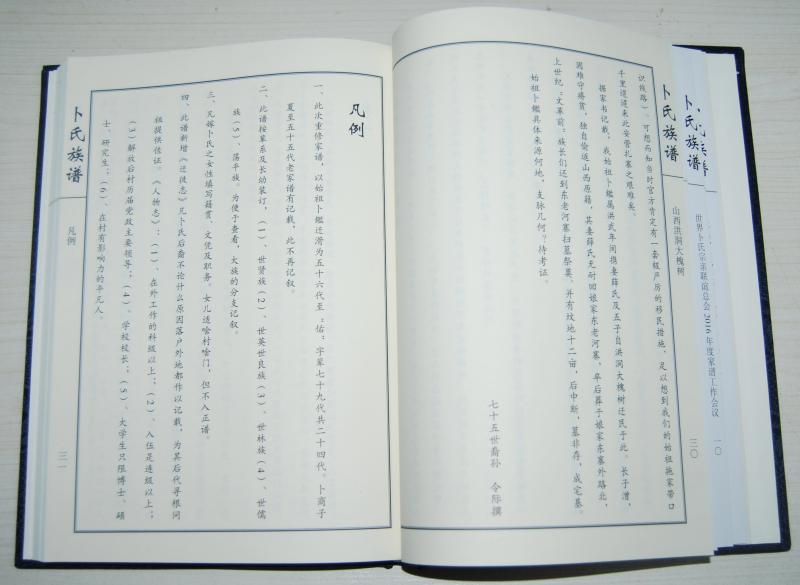 卜氏族谱
世界卜氏宗亲联谊总会2016年度家谱工作会议
一〇
卜氏族谱
山西洪洞大槐树
三〇
识线路）。可想而知当时官方肯定有一套极严厉的移民措施，足以想到我们的始祖拖家带口
千里迢迢来此安营扎寨之艰难矣。
据家书记载，我始祖卜鑑属洪武年间携妻薛氏及五子自洪洞大槐树迁民于此。长子潸，
困难守疼贫，独自偷返山西原籍，其妻薛氏无耐回娘家东老河寨，卒后葬于娘家东寨外路北，
上世纪“文革前”族长们还到东老河寨扫墓祭奠，并有坟地十二亩，后中断，墓非存，成宅基。
始祖卜鑑具体来源何地，支脉几何？待考证。
七十五世裔孙 令际撰
凡例
一、此次重修家谱，以始祖卜鑑迁滑为五十六代至“佑”字辈七十九代共二十四代。卜商子
夏至五十五代老家谱有记载，此不再记叙。
二、此谱按单系及长幼装订，（1）、世贤族（2）、世英世良族（3）、世林族（4）、世儒
族（5）、荡平族。为便于查看，大族的分支记叙。
三、凡嫁卜氏之女性填写籍贯、文凭及职务。女儿适啥村啥门，但不入正谱。
四、此谱新增《迁徙志》凡卜氏后裔不论什么原因落户外地都作以记载，为其后代寻根问
祖提供佐证。《人物志》：（1）、在外工作的科级以上；（2）、入伍是连级以上；
（3）解放后村历届党政主要领导；（4）、学校校长；（5）、大学生只限博士、硕
士、研究生；（6）、在村有影响力的平凡人。
卜氏族谱
凡例
三一